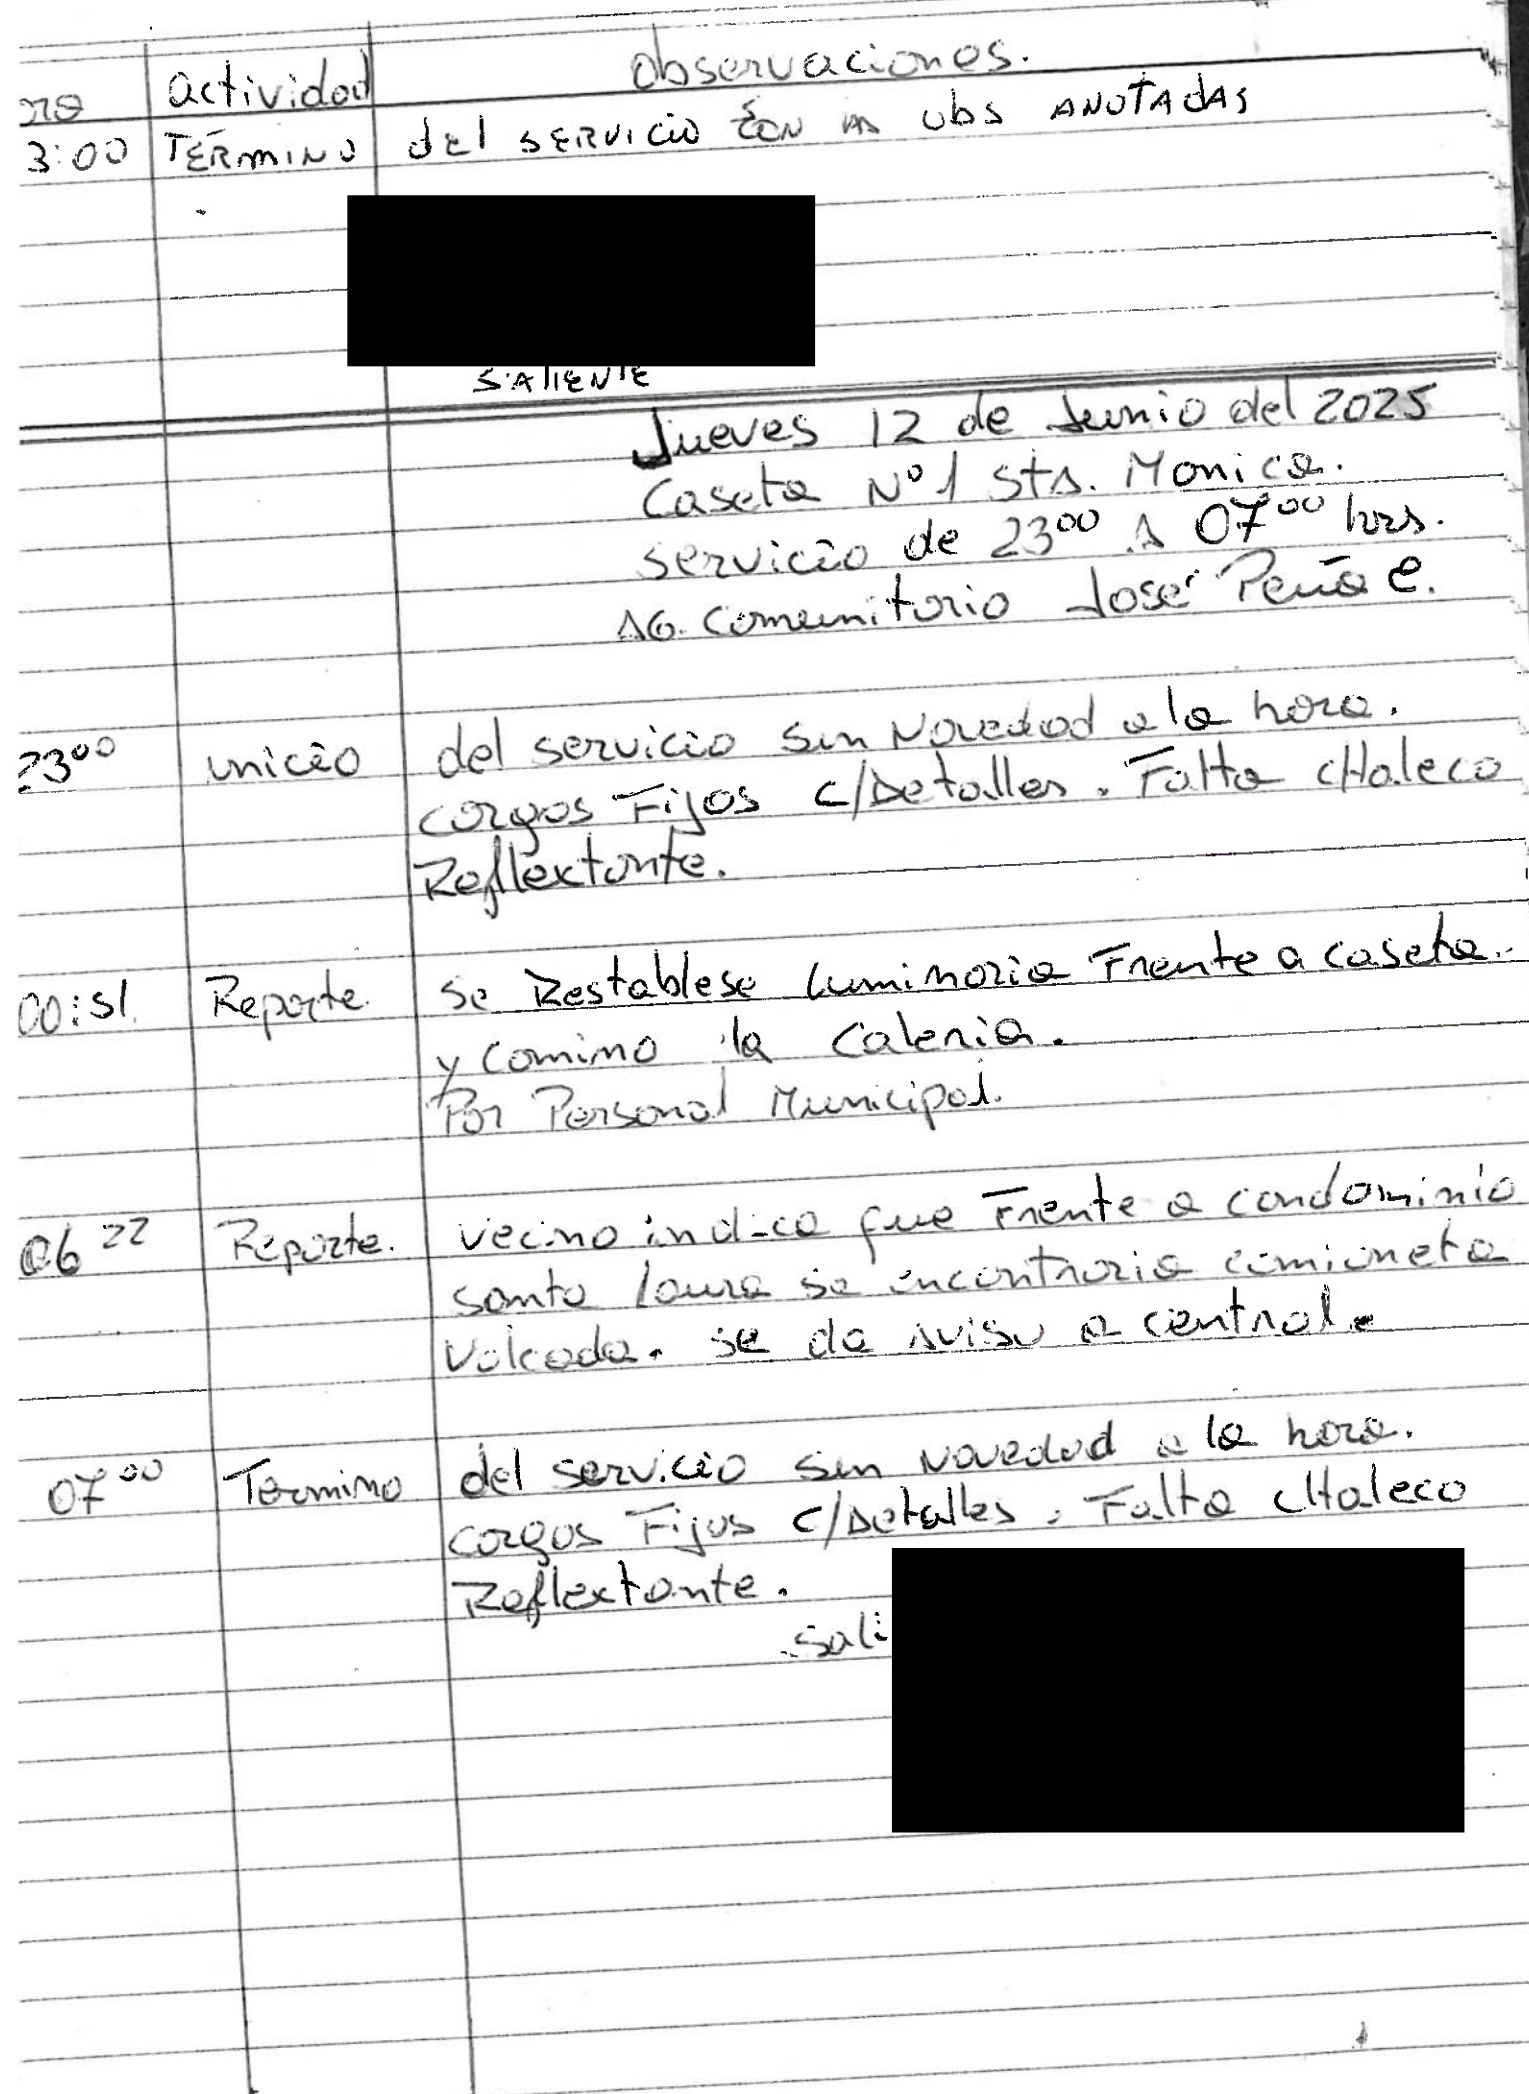 ora actividad observaciones.
3:00 TÉRMINO del SERVICIO CON las Obs ANOTADAS
SALIENTE
Jueves 12 de Junio del 2025
Caseta N°1 Sta. Monica.
servicio de 23:00 A 07:00 hrs.
AG. Comunitario José Peña C.
23:00 inicio del servicio sin Novedad a la hora.
cargos Fijos c/Detalles. Falta cHaleco
Reflextante.
00:51 Reporte. se Restablese luminaria Frente a caseta.
y camino la Caleria.
Por Personal Municipal.
06 22 Reporte. vecino indica que Frente a condominio
santa laura se encontraria camioneta
Volcada. se da aviso a central.
07:00 Termino del servicio sin novedad a la hora.
cargos Fijos c/Detalles. Falta cHaleco
Reflextante.
sali